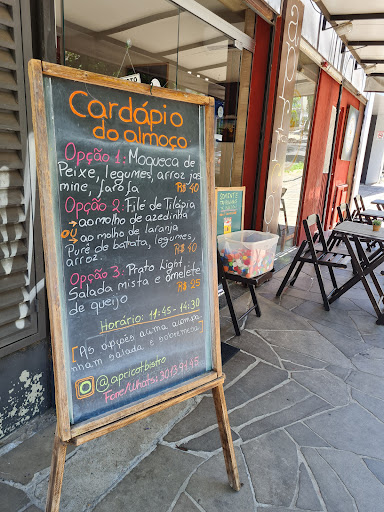 Cardápio
do almoço
Opção 1: Moqueca de
Peixe, legumes, arroz jas
mine, farofa R$ 40
Opção 2: Filé de Tilápia
ao molho de azedinha
ou ao molho de laranja
Purê de batata, legumes,
arroz. R$ 40
Opção 3: Prato Light
Salada mista e omelete
de queijo R$ 25
Horário: 11:45 - 14:30
[As opções acima acompa
nham salada e sobremesa]
@apricotbistro